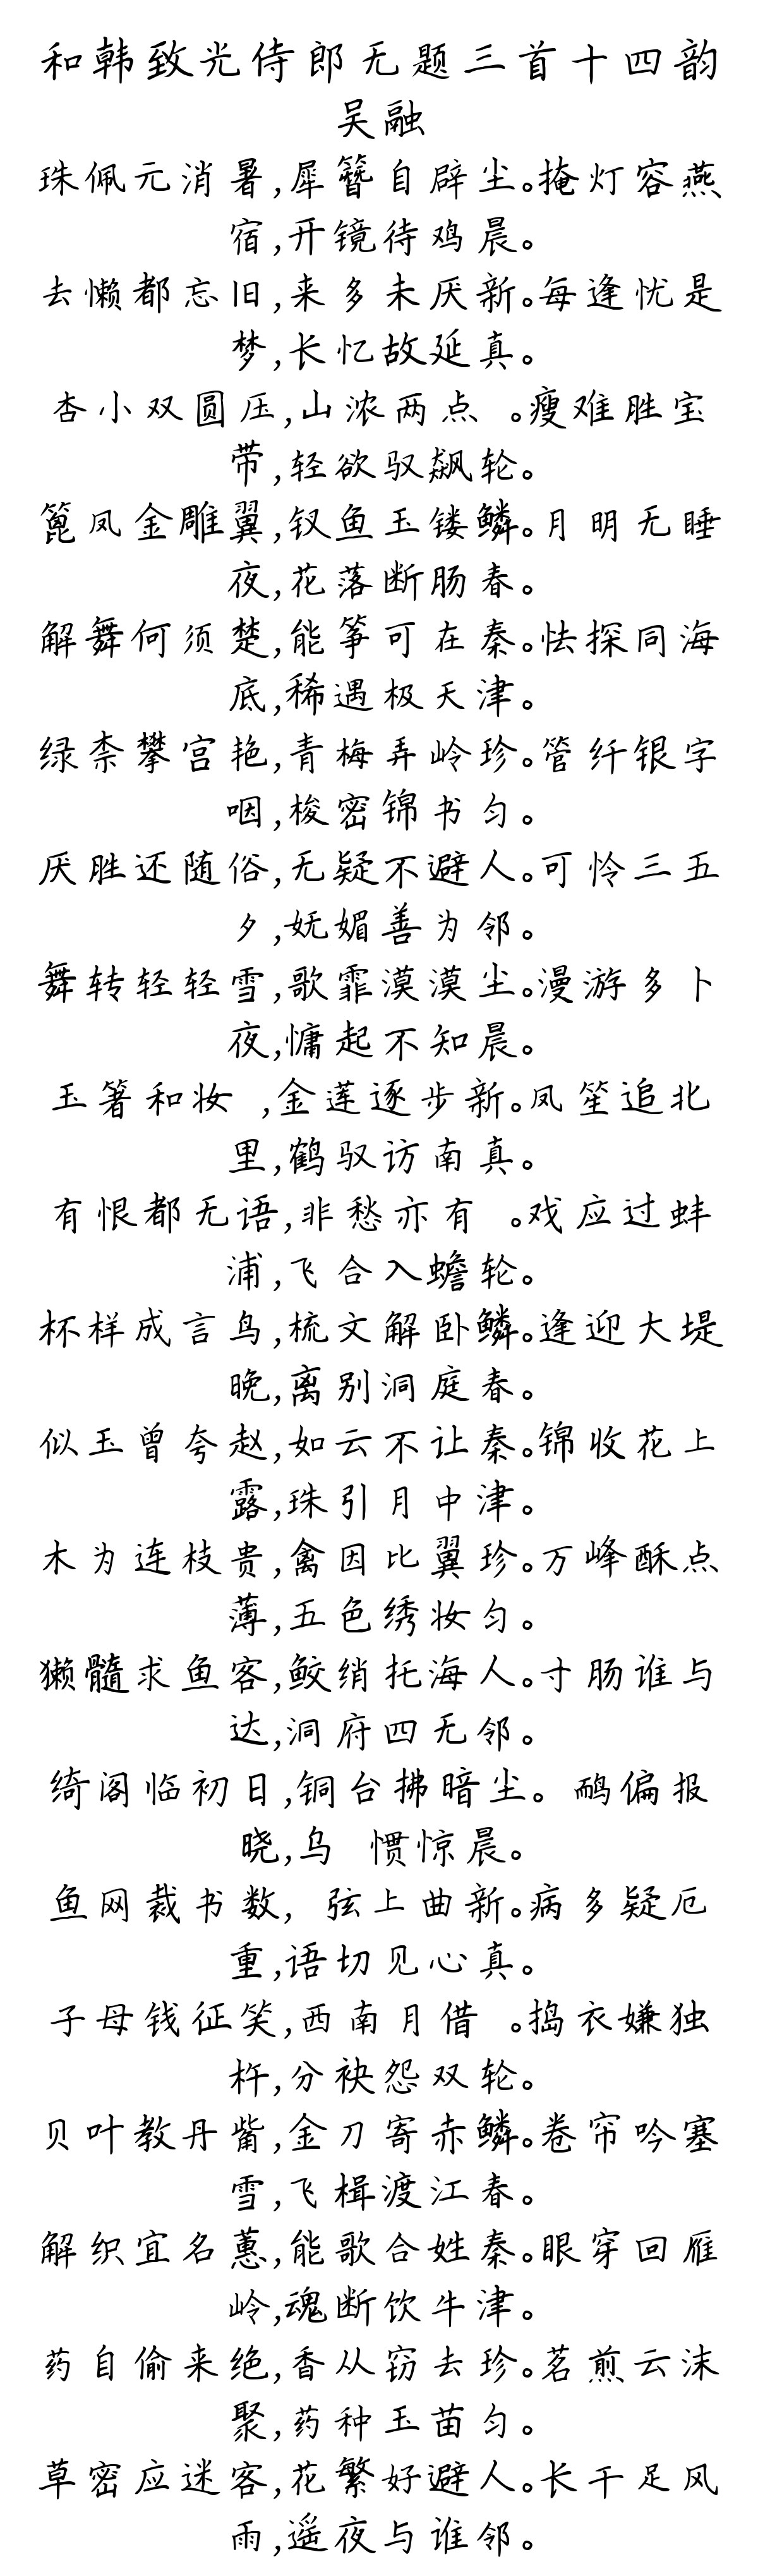 和韩致光侍郎无题三首十四韵
吴融
珠佩元消暑,犀簪自辟尘。掩灯容燕
宿,开镜待鸡晨。
去懒都忘旧,来多未厌新。每逢忧是
梦,长忆故延真。
杏小双圆压,山浓两点 。瘦难胜宝
带,轻欲驭飙轮。
篦凤金雕翼,钗鱼玉镂鳞。月明无睡
夜,花落断肠春。
解舞何须楚,能筝可在秦。怯探同海
底,稀遇极天津。
绿柰攀宫艳,青梅弄岭珍。管纤银字
咽,梭密锦书匀。
厌胜还随俗,无疑不避人。可怜三五
夕,妩媚善为邻。
舞转轻轻雪,歌霏漠漠尘。漫游多卜
夜,慵起不知晨。
玉箸和妆 ,金莲逐步新。凤笙追北
里,鹤驭访南真。
有恨都无语,非愁亦有 。戏应过蚌
浦,飞合入蟾轮。
杯样成言鸟,梳文解卧鳞。逢迎大堤
晚,离别洞庭春。
似玉曾夸赵,如云不让秦。锦收花上
露,珠引月中津。
木为连枝贵,禽因比翼珍。万峰酥点
薄,五色绣妆匀。
獭髓求鱼客,鲛绡托海人。寸肠谁与
达,洞府四无邻。
绮阁临初日,铜台拂暗尘。 鸸偏报
晓,乌 惯惊晨。
鱼网裁书数, 弦上曲新。病多疑厄
重,语切见心真。
子母钱征笑,西南月借 。捣衣嫌独
杵,分袂怨双轮。
贝叶教丹觜,金刀寄赤鳞。卷帘吟塞
雪,飞楫渡江春。
解织宜名蕙,能歌合姓秦。眼穿回雁
岭,魂断饮牛津。
药自偷来绝,香从窃去珍。茗煎云沫
聚,药种玉苗匀。
草密应迷客,花繁好避人。长干足风
雨,遥夜与谁邻。